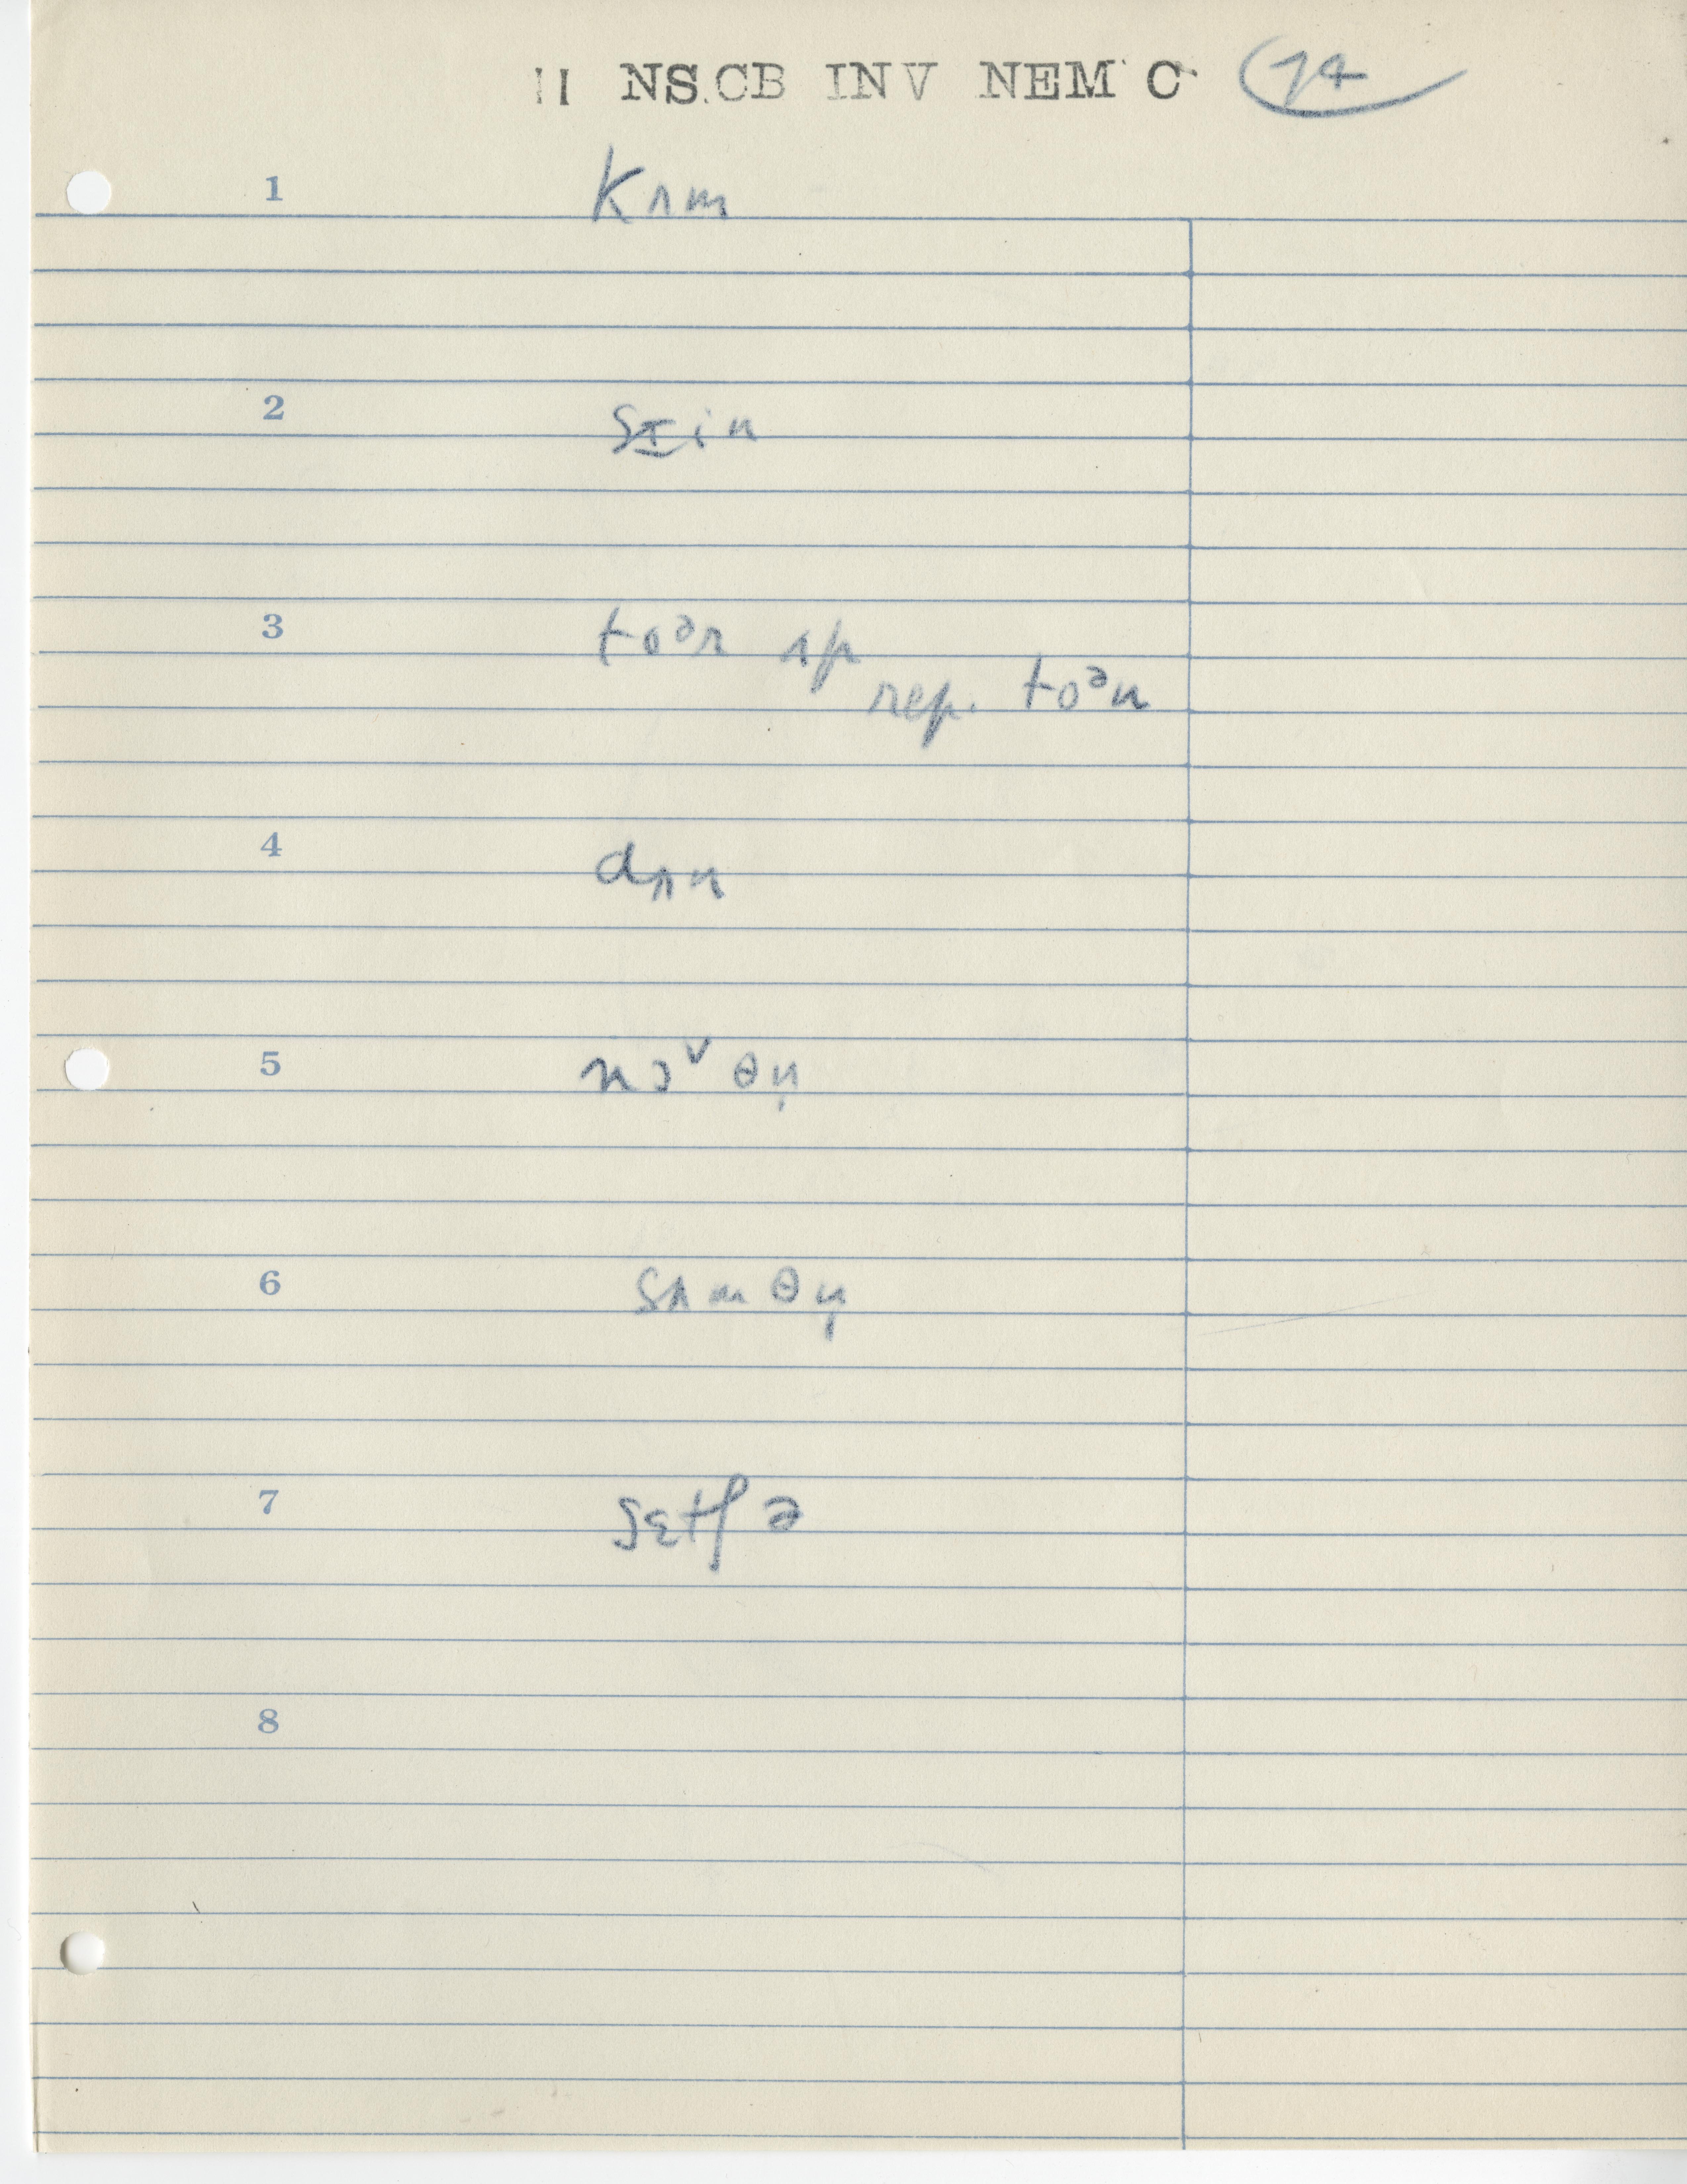 II NS.CB INV NEM C 74
1 kʌm
2 sɪin
3 toᵊn ʌp
rep. toᵊn
4 dʌn
5 nɔˇ θn̩
6 sʌmθn̩
7 sɛtʃə
8